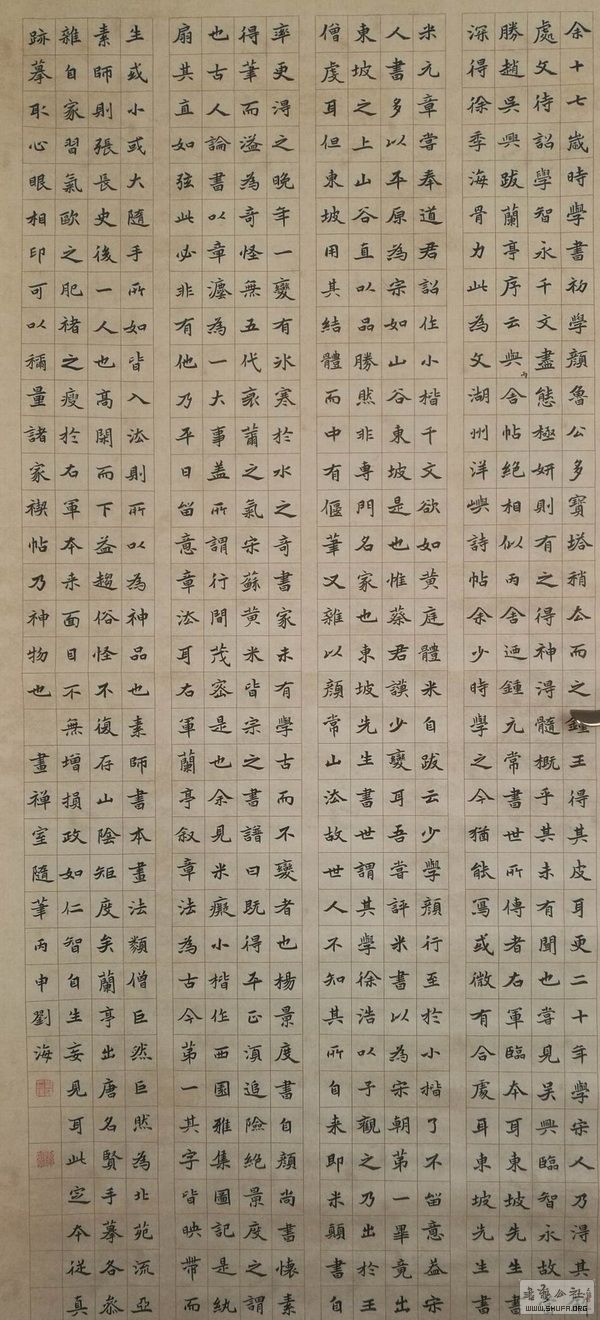 余十七歲時學書初學顏魯公多寶塔稍去而之鍾王得其皮耳更二十年學宋人乃得其
處文待詔學智永千文盡態極妍則有之得神得髓概乎其未有聞也嘗見吳興臨智永故
勝趙吳興跋蘭亭序云與丙舍帖絕相似丙舍迺鍾元常書世所傳者右軍臨本耳東坡先生書
深得徐季海骨力此為文湖州洋嶼詩帖余少時學之今猶能寫或微有合處耳東坡先生書
米元章嘗奉道君詔作小楷千文欲如黃庭體米自跋云少學顏行至於小楷了不留意益宋
人書多以平原為宗如山谷東坡是也惟蔡君謨少變耳吾嘗評米書以為宋朝第一畢竟出
東坡之上山谷直以品勝然非專門名家也東坡先生書世謂其學徐浩以予觀之乃出於王
僧虔耳但東坡用其結體而中有偃筆又雜以顏常山法故世人不知其所自来即米顛書自
率更得之晚年一變有冰寒於水之奇書家未有學古而不變者也楊景度書自顏尚書懷素
得筆而溢為奇怪無五代衰薾之氣宋蘇黃米皆宗之書譜曰既得平正須追險絕景度之謂
也古人論書以章灋為一大事盖所謂行間茂密是也余見米癡小楷作西園雅集圖記是紈
扇其直如弦此必非有他乃平日留意章法耳右軍蘭亭叙章法為古今第一其字皆映帶而
生或小或大隨手所如皆入法則所以為神品也素師書本畫法類僧巨然巨然為北苑流亞
素師則張長史後一人也高閑而下益趨俗怪不復存山陰矩度矣蘭亭出唐名賢手摹各参
雜自家習氣歐之肥褚之瘦於右軍本来面目不無增損政如仁智自生妄見耳此定本從真
跡摹取心眼相印可以稱量諸家禊帖乃神物也 畫禪室隨筆丙申劉海
WWW.SHUFA.ORG